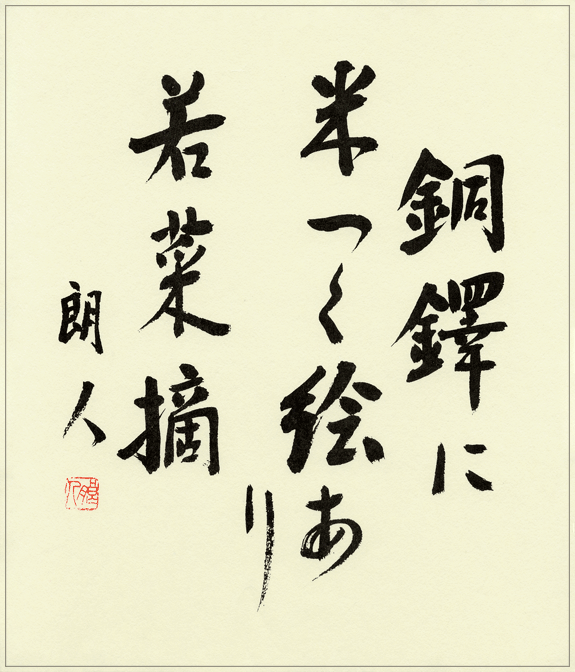 銅鐸に
米つく絵あ
り
若菜摘
朗人